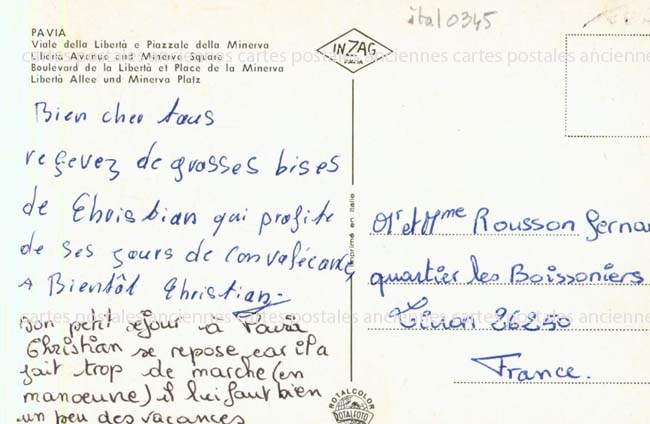 ital0345
PAVIA
Viale della Libertà e Piazzale della Minerva
Liberty Avenue and Minerva Square
Boulevard de la Libertà et Place de la Minerva
Libertà Allee und Minerva Platz
INZAG
PAVIA
cartes postales anciennes cartes postales anciennes cartes postales anciennes
Bien cher tous
reçevez de grosses bises
de Christian qui profite
de ses jours de convalécance
A Bientôt Christian.
Bon petit séjour à Pavia
Christian se repose car il a
fait trop de marche (en
manoeuvre) il lui faut bien
un peu des vacances
Imprimé en Italie
Mr et Mme Rousson Ferna
quartier les Boissoniers
26230
France.
cartes postales anciennes cartes postales anciennes cartes postales anciennes
ROTALCOLOR
ROTALFOTO